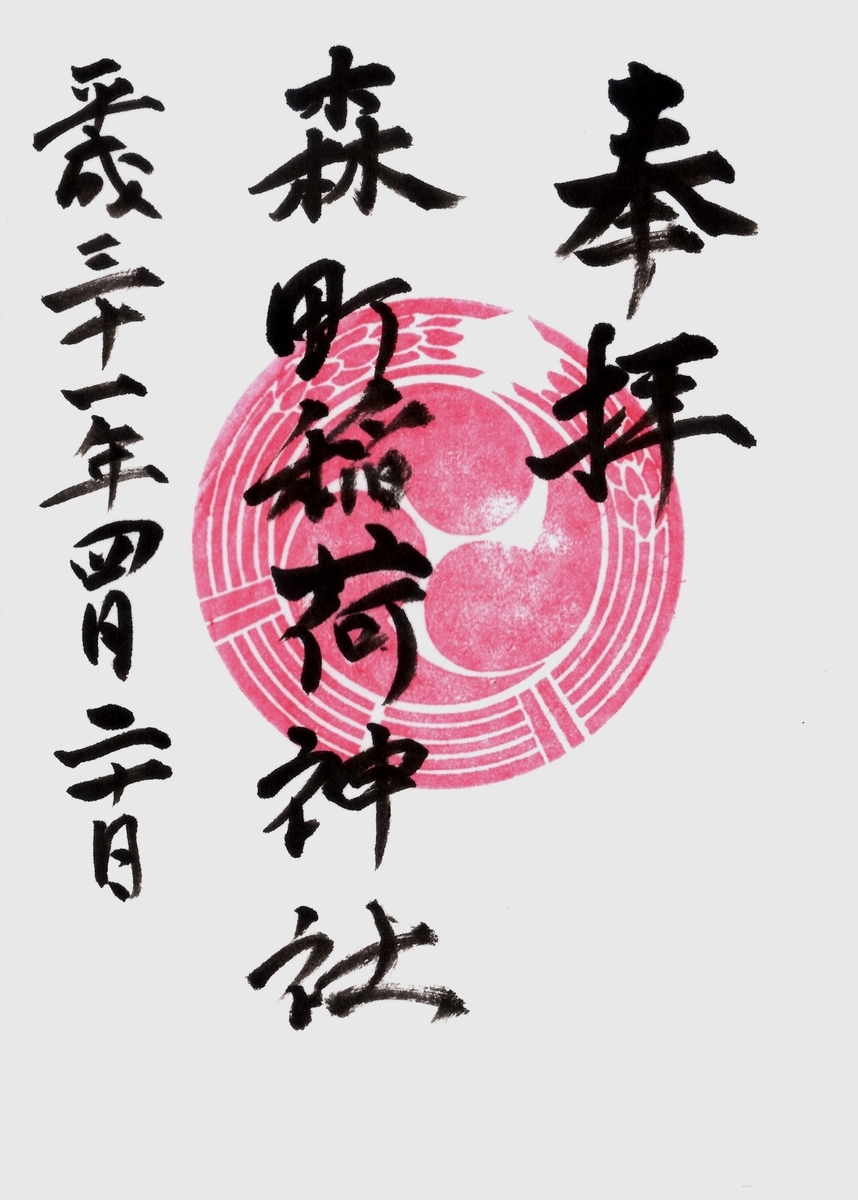 奉拝
森町稲荷神社
平成三十一年四月二十日